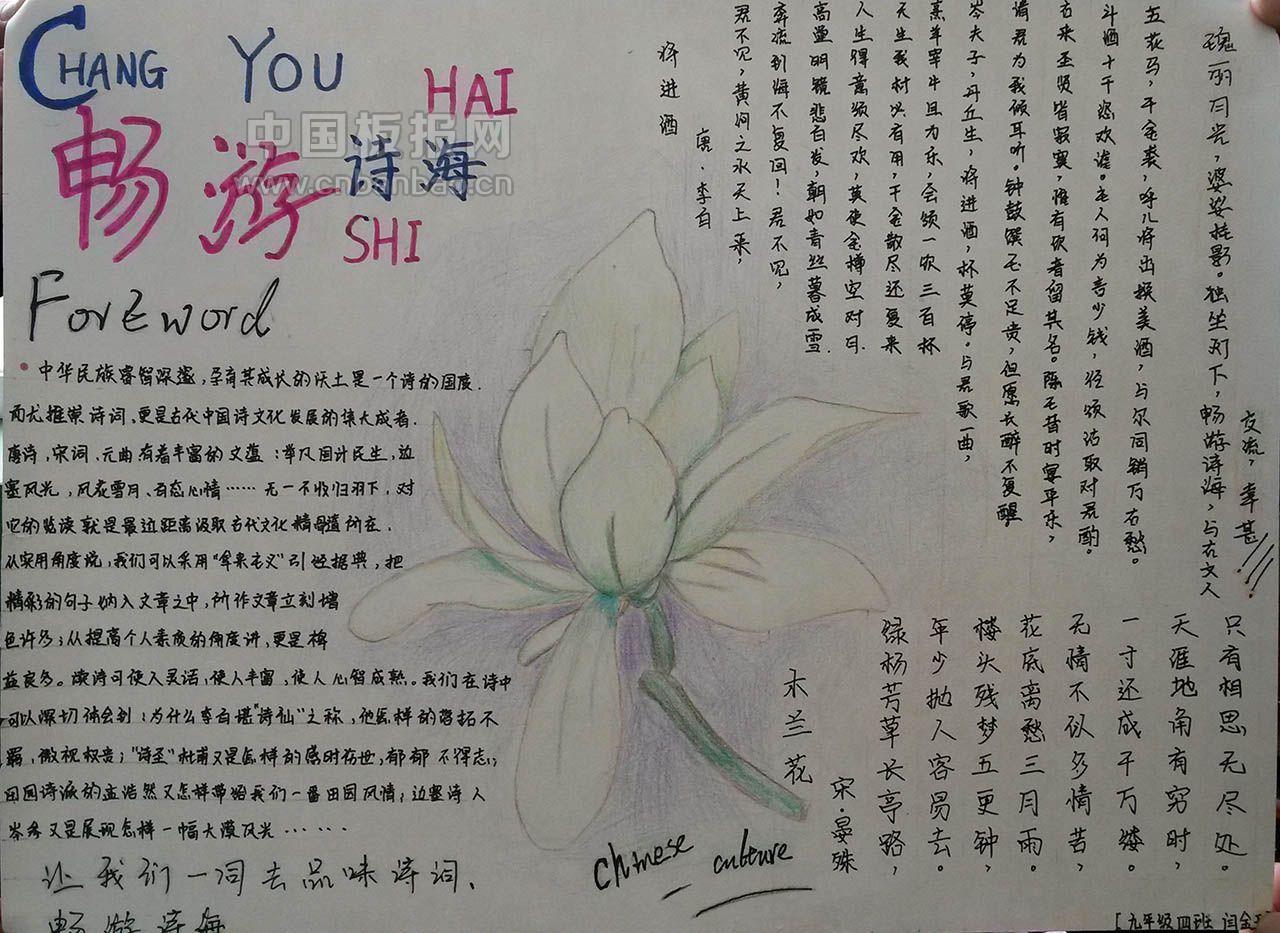 CHANG YOU
HAI
畅游诗海
SHI
中国板报网
www.cnbanbao.cn
Forzword
中华民族睿智深邃,孕育其成长的沃土是一个诗的国度.
而尤推崇诗词、更是古代中国诗文化发展的集大成者.
唐诗,宋词、元曲有着丰富的文蕴:举凡国计民生,边
塞风光,风花雪月、百态心情……无一不收归羽下,对
它的览读就是最近距离汲取古代文化精髓所在.
从实用角度说,我们可以采用“拿来主义”引经据典,把
精彩的句子纳入文章之中,所作文章立刻增
色许多;从提高个人素质的角度讲,更是裨
益良多。读诗可使人灵活,使人丰富,使人心智成熟。我们在诗中
可以深切体会到:为什么李白堪“诗仙”之称,他怎样的落拓不
羁,微视权贵;“诗圣”杜甫又是怎样的感时伤世,郁郁不得志;
田园诗派的孟浩然又怎样带给我们一番田园风情;边塞诗人
岑参又是展现怎样一幅大漠风光……
让我们一同去品味诗词、
畅游诗海
瑰丽月光,婆娑桂影。独坐灯下,畅游诗海,与古文人
交流,幸甚!!!
将进酒
唐·李白
君不见,黄河之水天上来,
奔流到海不复回!君不见,
高堂明镜悲白发,朝如青丝暮成雪.
人生得意须尽欢,莫使金樽空对月.
天生我材必有用,千金散尽还复来
烹羊宰牛且为乐,会须一饮三百杯
岑夫子,丹丘生,将进酒,杯莫停。与君歌一曲,
请君为我倾耳听。钟鼓馔玉不足贵,但愿长醉不复醒。
古来圣贤皆寂寞,惟有饮者留其名。陈王昔时宴平乐,
斗酒十千恣欢谑。主人何为言少钱,径须沽取对君酌。
五花马,千金裘,呼儿将出换美酒,与尔同销万古愁。
木兰花
宋·晏殊
绿杨芳草长亭路,
年少抛人容易去。
楼头残梦五更钟,
花底离愁三月雨。
无情不似多情苦,
一寸还成千万缕。
天涯地角有穷时,
只有相思无尽处。
chinese culture
[九年级四班 闫金